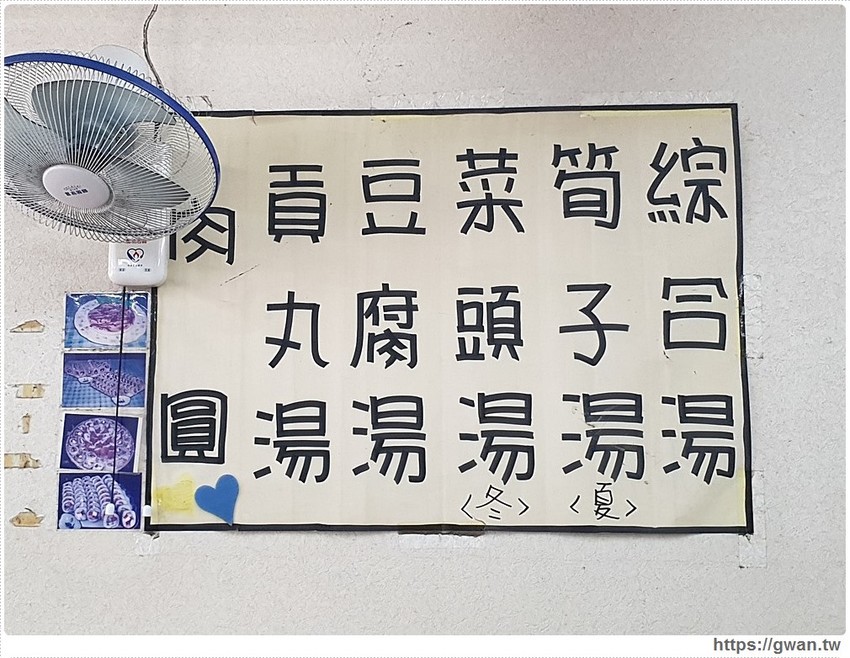 綜合湯
筍子湯
〈夏〉
菜頭湯
〈冬〉
豆腐湯
貢丸湯
肉圓
https://gwan.tw